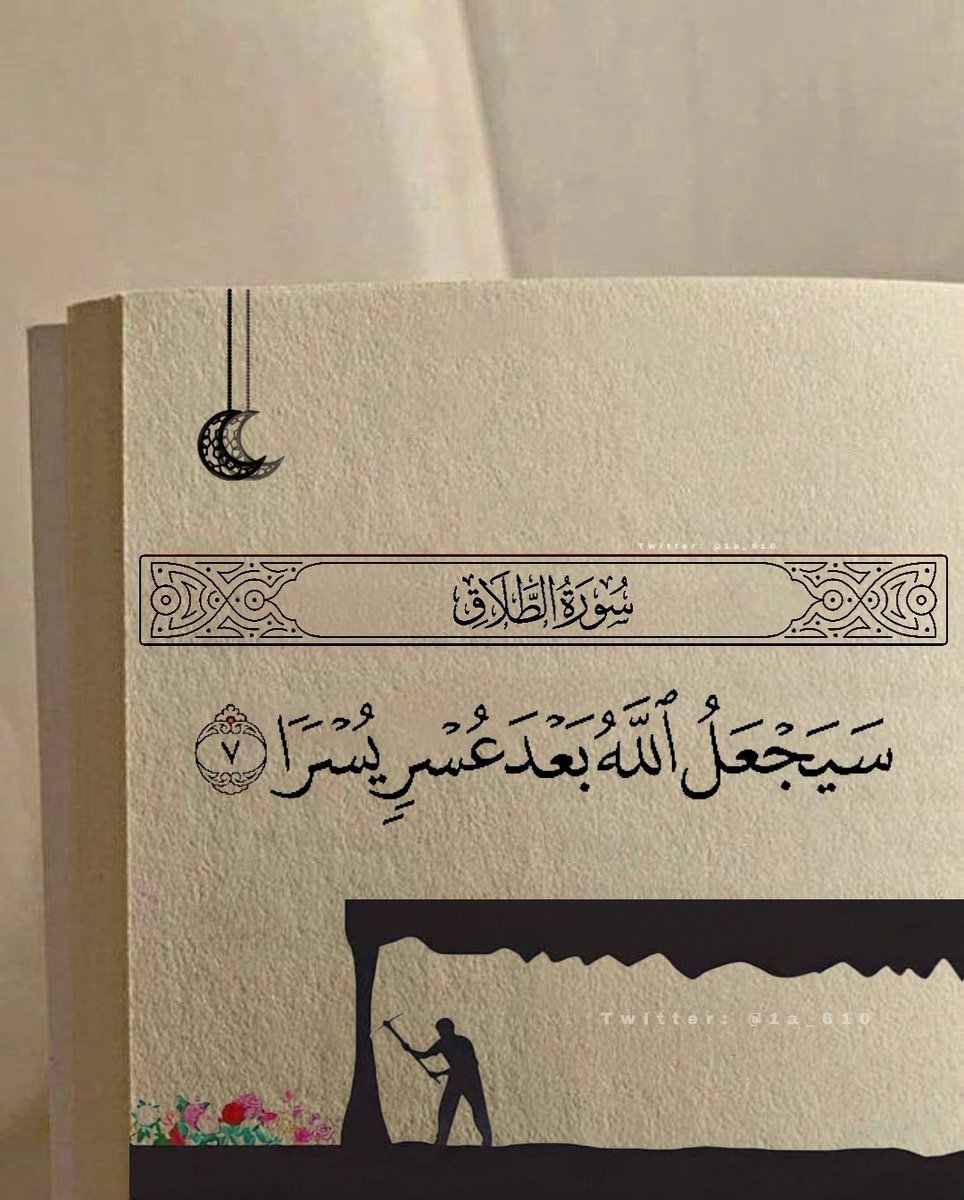 Twitter: @1a_610
سُورَةُ الطَّلَاقِ
سَيَجْعَلُ ٱللَّهُ بَعْدَ عُسْرٍ يُسْرًا ٧
Twitter: @1a_610